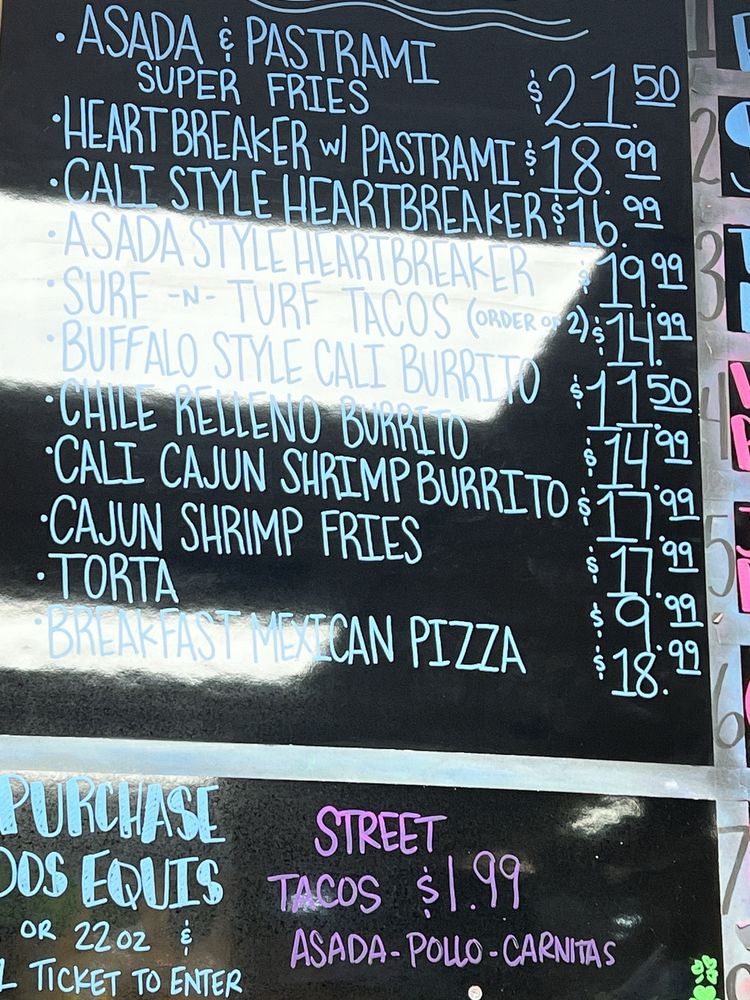 · ASADA & PASTRAMI
SUPER FRIES $21.50
· HEARTBREAKER w/ PASTRAMI $18.99
· CALI STYLE HEARTBREAKER $16.99
· ASADA STYLE HEARTBREAKER $19.99
· SURF -N- TURF TACOS (ORDER OF 2) $14.99
· BUFFALO STYLE CALI BURRITO $11.50
· CHILE RELLENO BURRITO $14.99
· CALI CAJUN SHRIMP BURRITO $17.99
· CAJUN SHRIMP FRIES $17.99
· TORTA $9.99
· BREAKFAST MEXICAN PIZZA $18.99
PURCHASE
DOS EQUIS
OR 22 OZ &
TICKET TO ENTER
STREET
TACOS $1.99
ASADA - POLLO - CARNITAS
1
2
3
4
5
6
7